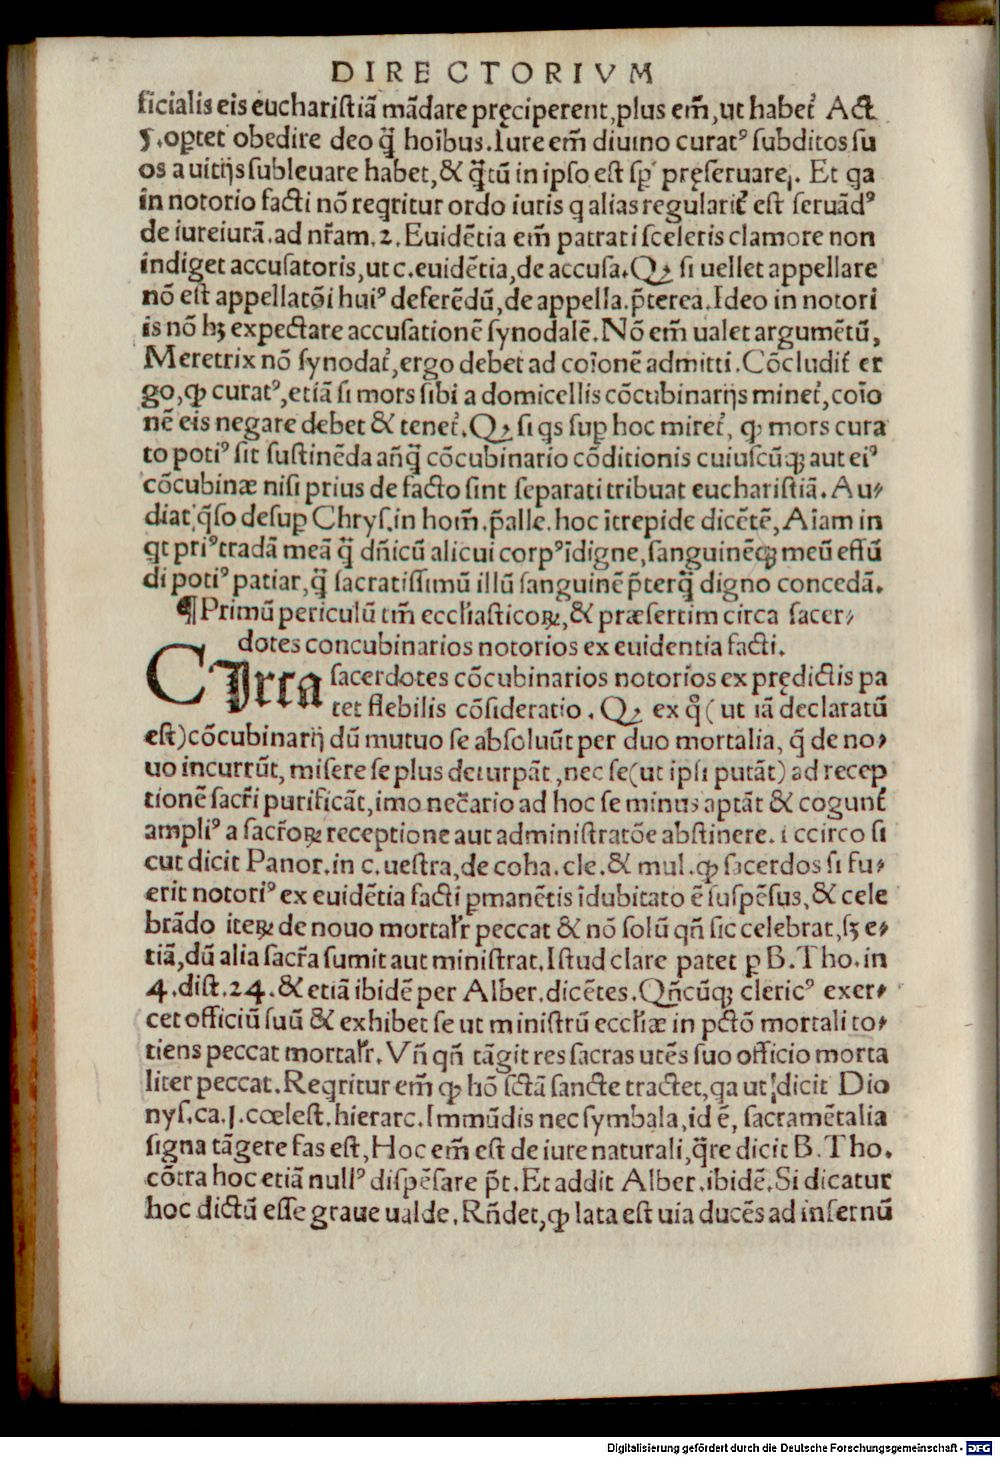 DIRECTORIVM
ficialis eis euchariſtiā mādare pręciperent, plus em̄, ut habet᷑ Act
5. oꝑtet obedire deo q̄̈ hoībus. Iure em̄ diuino curatꝰ ſubditos ſu
os a uitijs ſubleuare habet, & q̄̈tū in ipſo eſt ſꝑ pręſeruare. Et qa
in notorio facti nō reqritur ordo iuris q alias regularit᷑ eſt ſeruādꝰ
de iureiurā. ad nr̄am. 2. Euidētia em̄ patrati ſceleris clamore non
indiget accuſatoris, ut c. euidētia, de accuſa. Qꝫ ſi uellet appellare
nō eſt appellatōi huiꝰ deferēdū, de appella. p̄terea. Ideo in notori
is nō hꝫ expectare accuſationē ſynodalē. Nō em̄ ualet argumētū,
Meretrix nō ſynodat᷑, ergo debet ad coīonē admitti. Cōcludit᷑ er
go, ꝙ curatꝰ, etiā ſi mors ſibi a domicellis cōcubinarijs minet᷑, coīo
nē eis negare debet & tenet᷑. Qꝫ ſi qs ſuꝑ hoc miret᷑, ꝙ mors cura
to potiꝰ ſit ſuſtinēda añq̄̈ cōcubinario cōditionis cuiuſcūqꝫ aut eiꝰ
cōcubinæ niſi prius de facto ſint ſeparati tribuat euchariſtiā. Au⸗
diat q̄ſo deſuꝑ Chryſ. in hom̄. p̄alle. hoc ītrepide dicētē, Aīam in
qt priꝰ tradā meā q̄̈ dñicū alicui corpꝰ īdigne, ſanguinēqꝫ meū effū
di potiꝰ patiar, q̄̈ ſacratiſſimū illū ſanguinē p̄terq̄̈ digno concedā.
¶ Primū periculū tm̄ eccl̄iaſticoꝝ, & præſertim circa ſacer⸗
dotes concubinarios notorios ex euidentia facti.
CIrca ſacerdotes cōcubinarios notorios ex prędictis pa
tet flebilis cōſideratio. Qꝫ ex qͦ (ut iā declaratū
eſt) cōcubinarij dū mutuo ſe abſoluūt per duo mortalia, q̄ de no⸗
uo incurrūt, miſere ſe plus deturpāt, nec ſe (ut ipſi putāt) ad recep
tionē ſacr̄i purificāt, imo nec̄ario ad hoc ſe minus aptāt & cogunt᷑
ampliꝰ a ſacr̄oꝝ receptione aut adminiſtratōe abſtinere. iccirco ſi
cut dicit Panor. in c. ueſtra, de coha. cle. & mul. ꝙ ſacerdos ſi fu⸗
erit notoriꝰ ex euidētia facti ꝑmanētis īdubitato ē ſuſpēſus, & cele
brādo iteꝝ de nouo mortal̄r peccat & nō ſolū qñ ſic celebrat, ſꝫ e⸗
tiā, dū alia ſacr̄a ſumit aut miniſtrat. Iſtud clare patet ꝑ B. Tho. in
4. diſt. 24. & etiā ibidē per Alber. dicētes. Qñcūqꝫ clericꝰ exer⸗
cet officiū ſuū & exhibet ſe ut miniſtrū eccl̄iæ in pctō mortali to⸗
tiens peccat mortal̄r. Vñ qñ tāgit res ſacras utēs ſuo officio morta
liter peccat. Reqritur em̄ ꝙ hō ſctā ſancte tractet, qa ut dicit Dio
nyſ. ca. J. cœleſt. hierarc. Immūdis nec ſymbala, id ē, ſacramētalia
ſigna tāgere fas eſt, Hoc em̄ eſt de iure naturali, q̄̈re dicit B. Tho.
cōtra hoc etiā nullꝰ diſpēſare p̄t. Et addit Alber. ibidē. Si dicatur
hoc dictū eſſe graue ualde. Rñdet, ꝙ lata eſt uia ducēs ad infernū
Digitalisierung gefördert durch die Deutsche Forschungsgemeinschaft - DFG